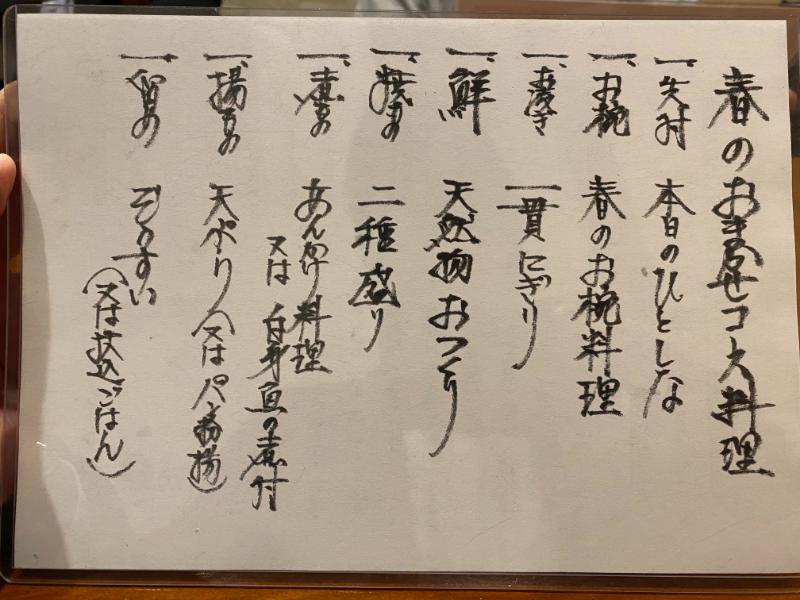 春の コース料理
一、先付 本日のひとしな
一、お椀 春のお椀料理
一、凌ぎ 一貫にぎり
一、鮮 天然物おつくり
一、焼もの 二種盛り
一、煮もの あんかけ料理
又は 白身魚の煮付
一、揚もの 天ぷら（又はパン粉揚）
一、留もの ぞうすい
（又は炊込ごはん）